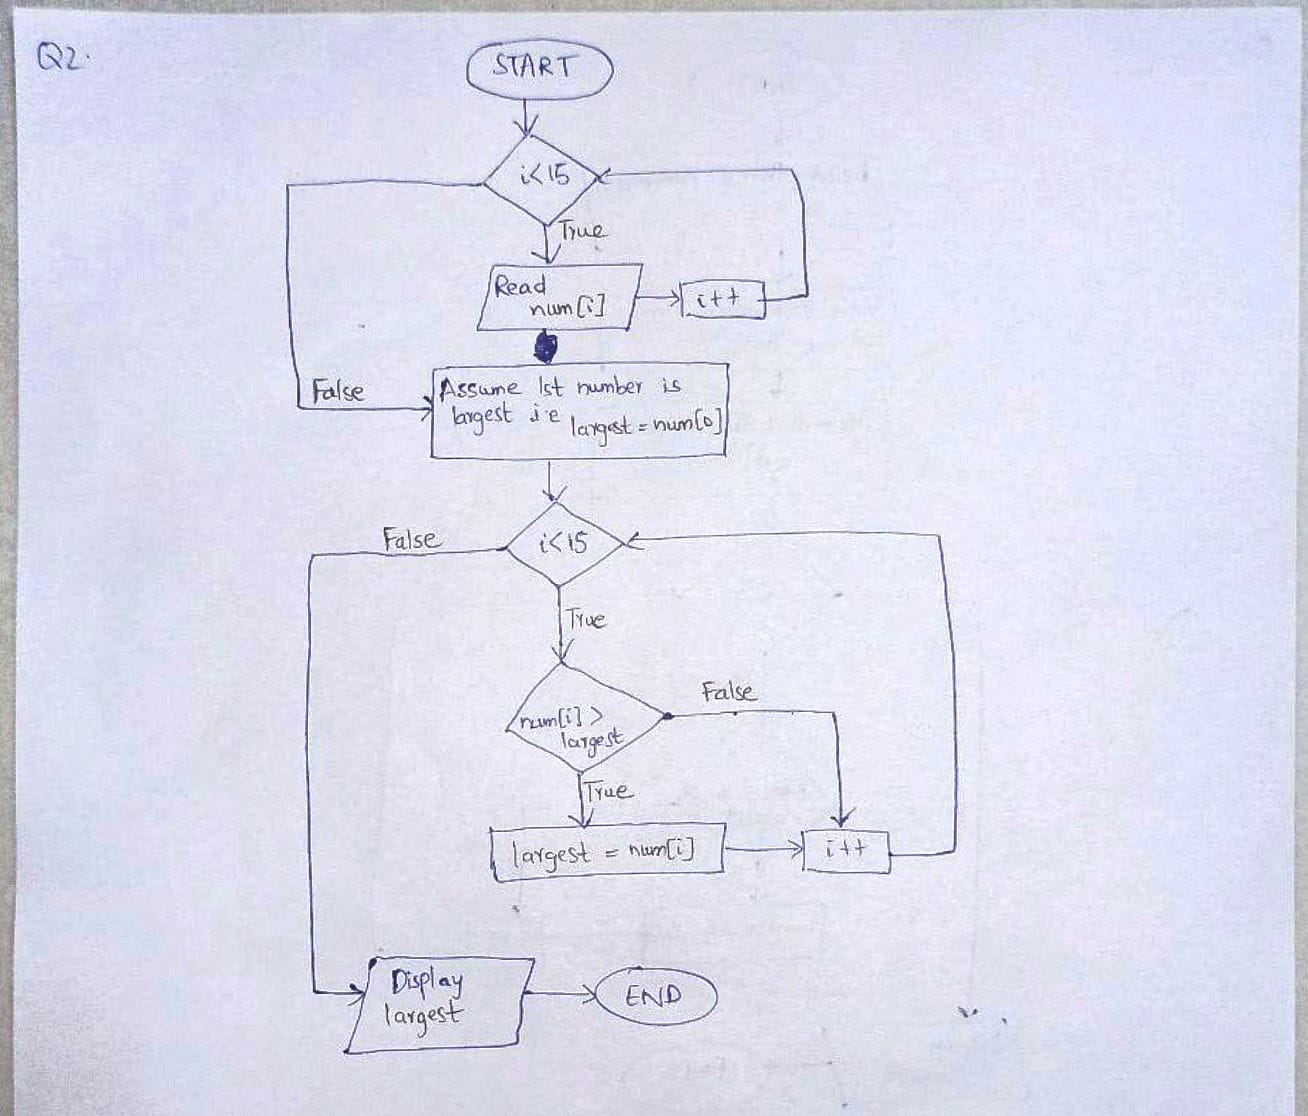 Q2.
START
i<15
True
Read
num[i]
i++
False
Assume 1st number is
largest i.e largest = num[0]
i<15
False
True
num[i] >
largest
False
True
largest = num[i]
i++
Display
largest
END